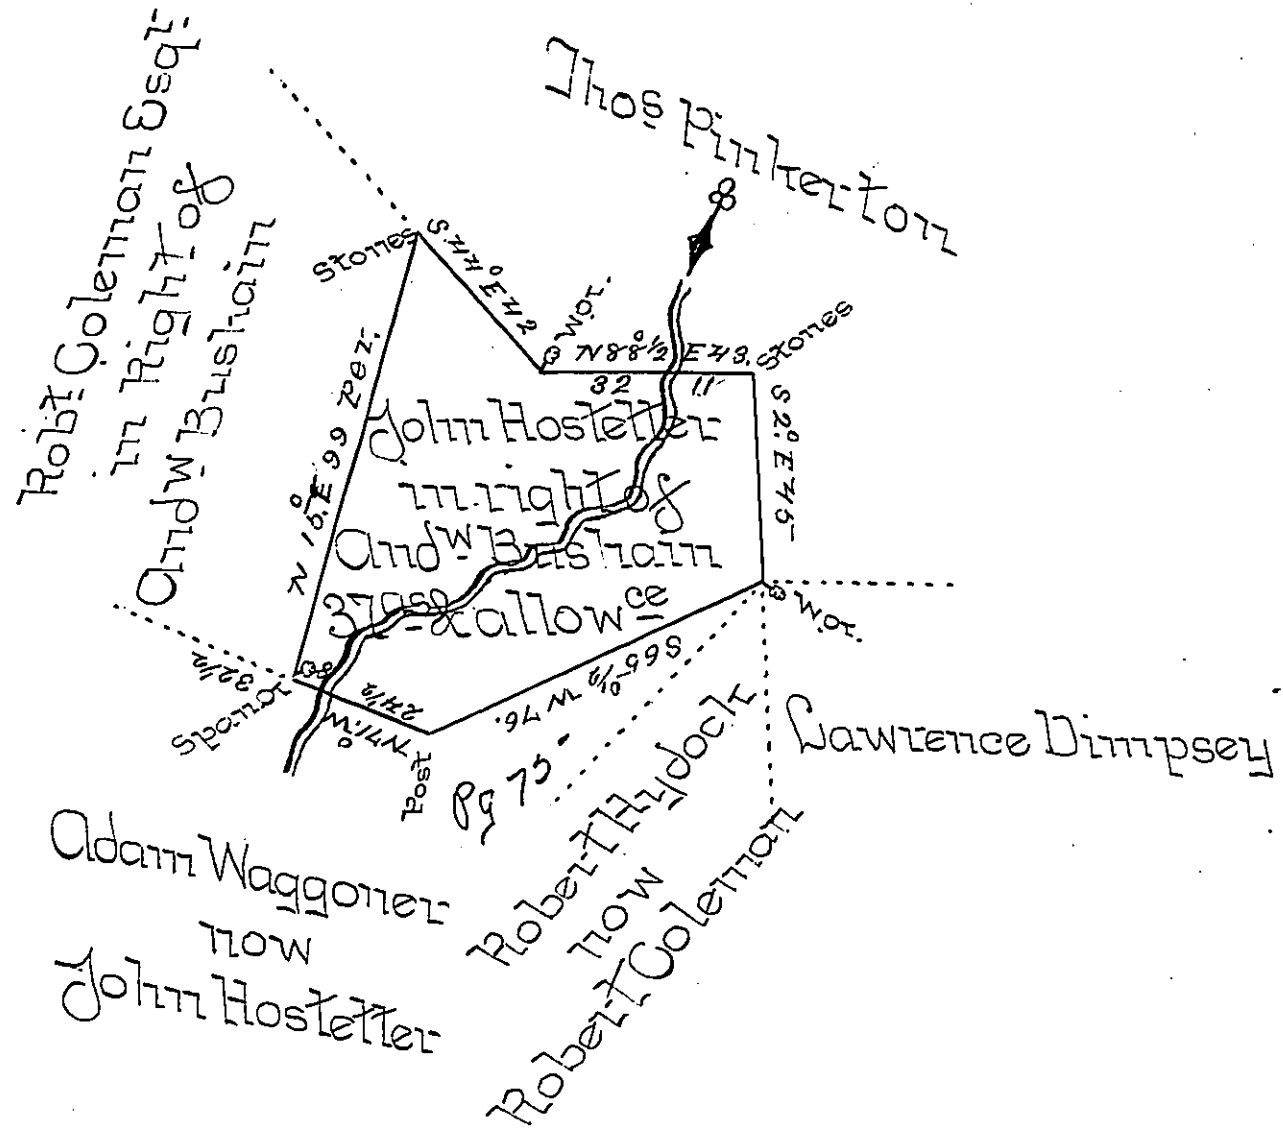 Robt Coleman Esqr.
in Right of
Andw Bushain
Thos Pinkerton
Stones
S. 44° E 42
W.O.
N 88° 1/2 E 43.
32 11
Stones
S 2° E 45
N 15° E 99 Per.
John Hostetter
in right of
Andw Bushain
37as & allowce
W.O.
S 65° 1/2 W 76.
32 1/2
Span O
24 1/2
N 71° W.
Post
Pg 75
Lawrence Dimpsey
Robert Hydock
now
Robert Coleman
Adam Waggoner
now
John Hostetter